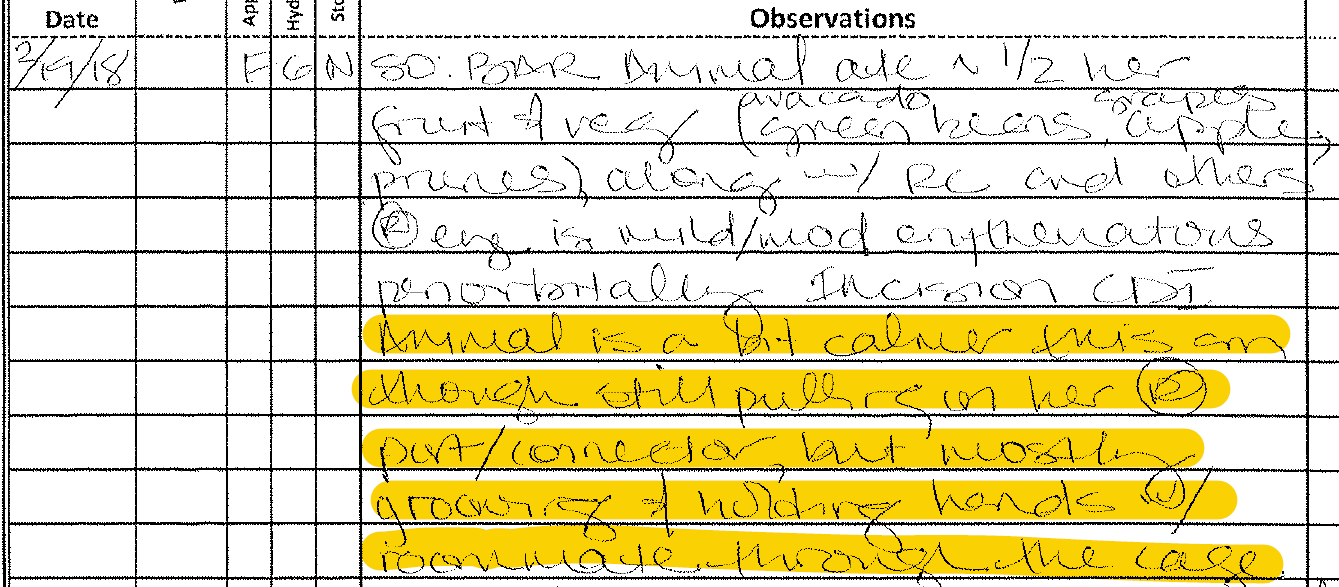 Date App Hyd Sto Observations
2/19/18 F G N SO: BAR Animal ate ~ 1/2 her
avacado grapes
fruit & veg (green beans, apple,
prunes), along w/ RC and others
(R) eye is mild/mod erythematous
periorbitally Incision CDI
Animal is a bit calmer this am
though still pulling on her (R)
port/connector, but mostly
grooming & holding hands w/
roommate through the cage.